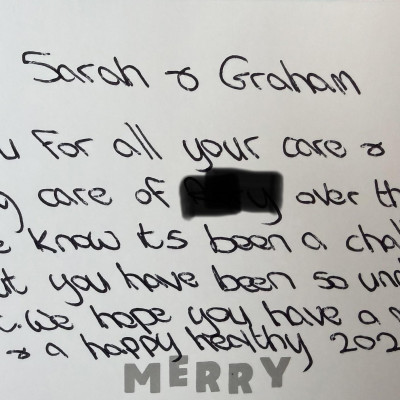 Sarah & Graham
u For all your care &
g care of over th
e know its been a chal
ut you have been so und
t. We hope you have a m
& a happy healthy 202
MERRY